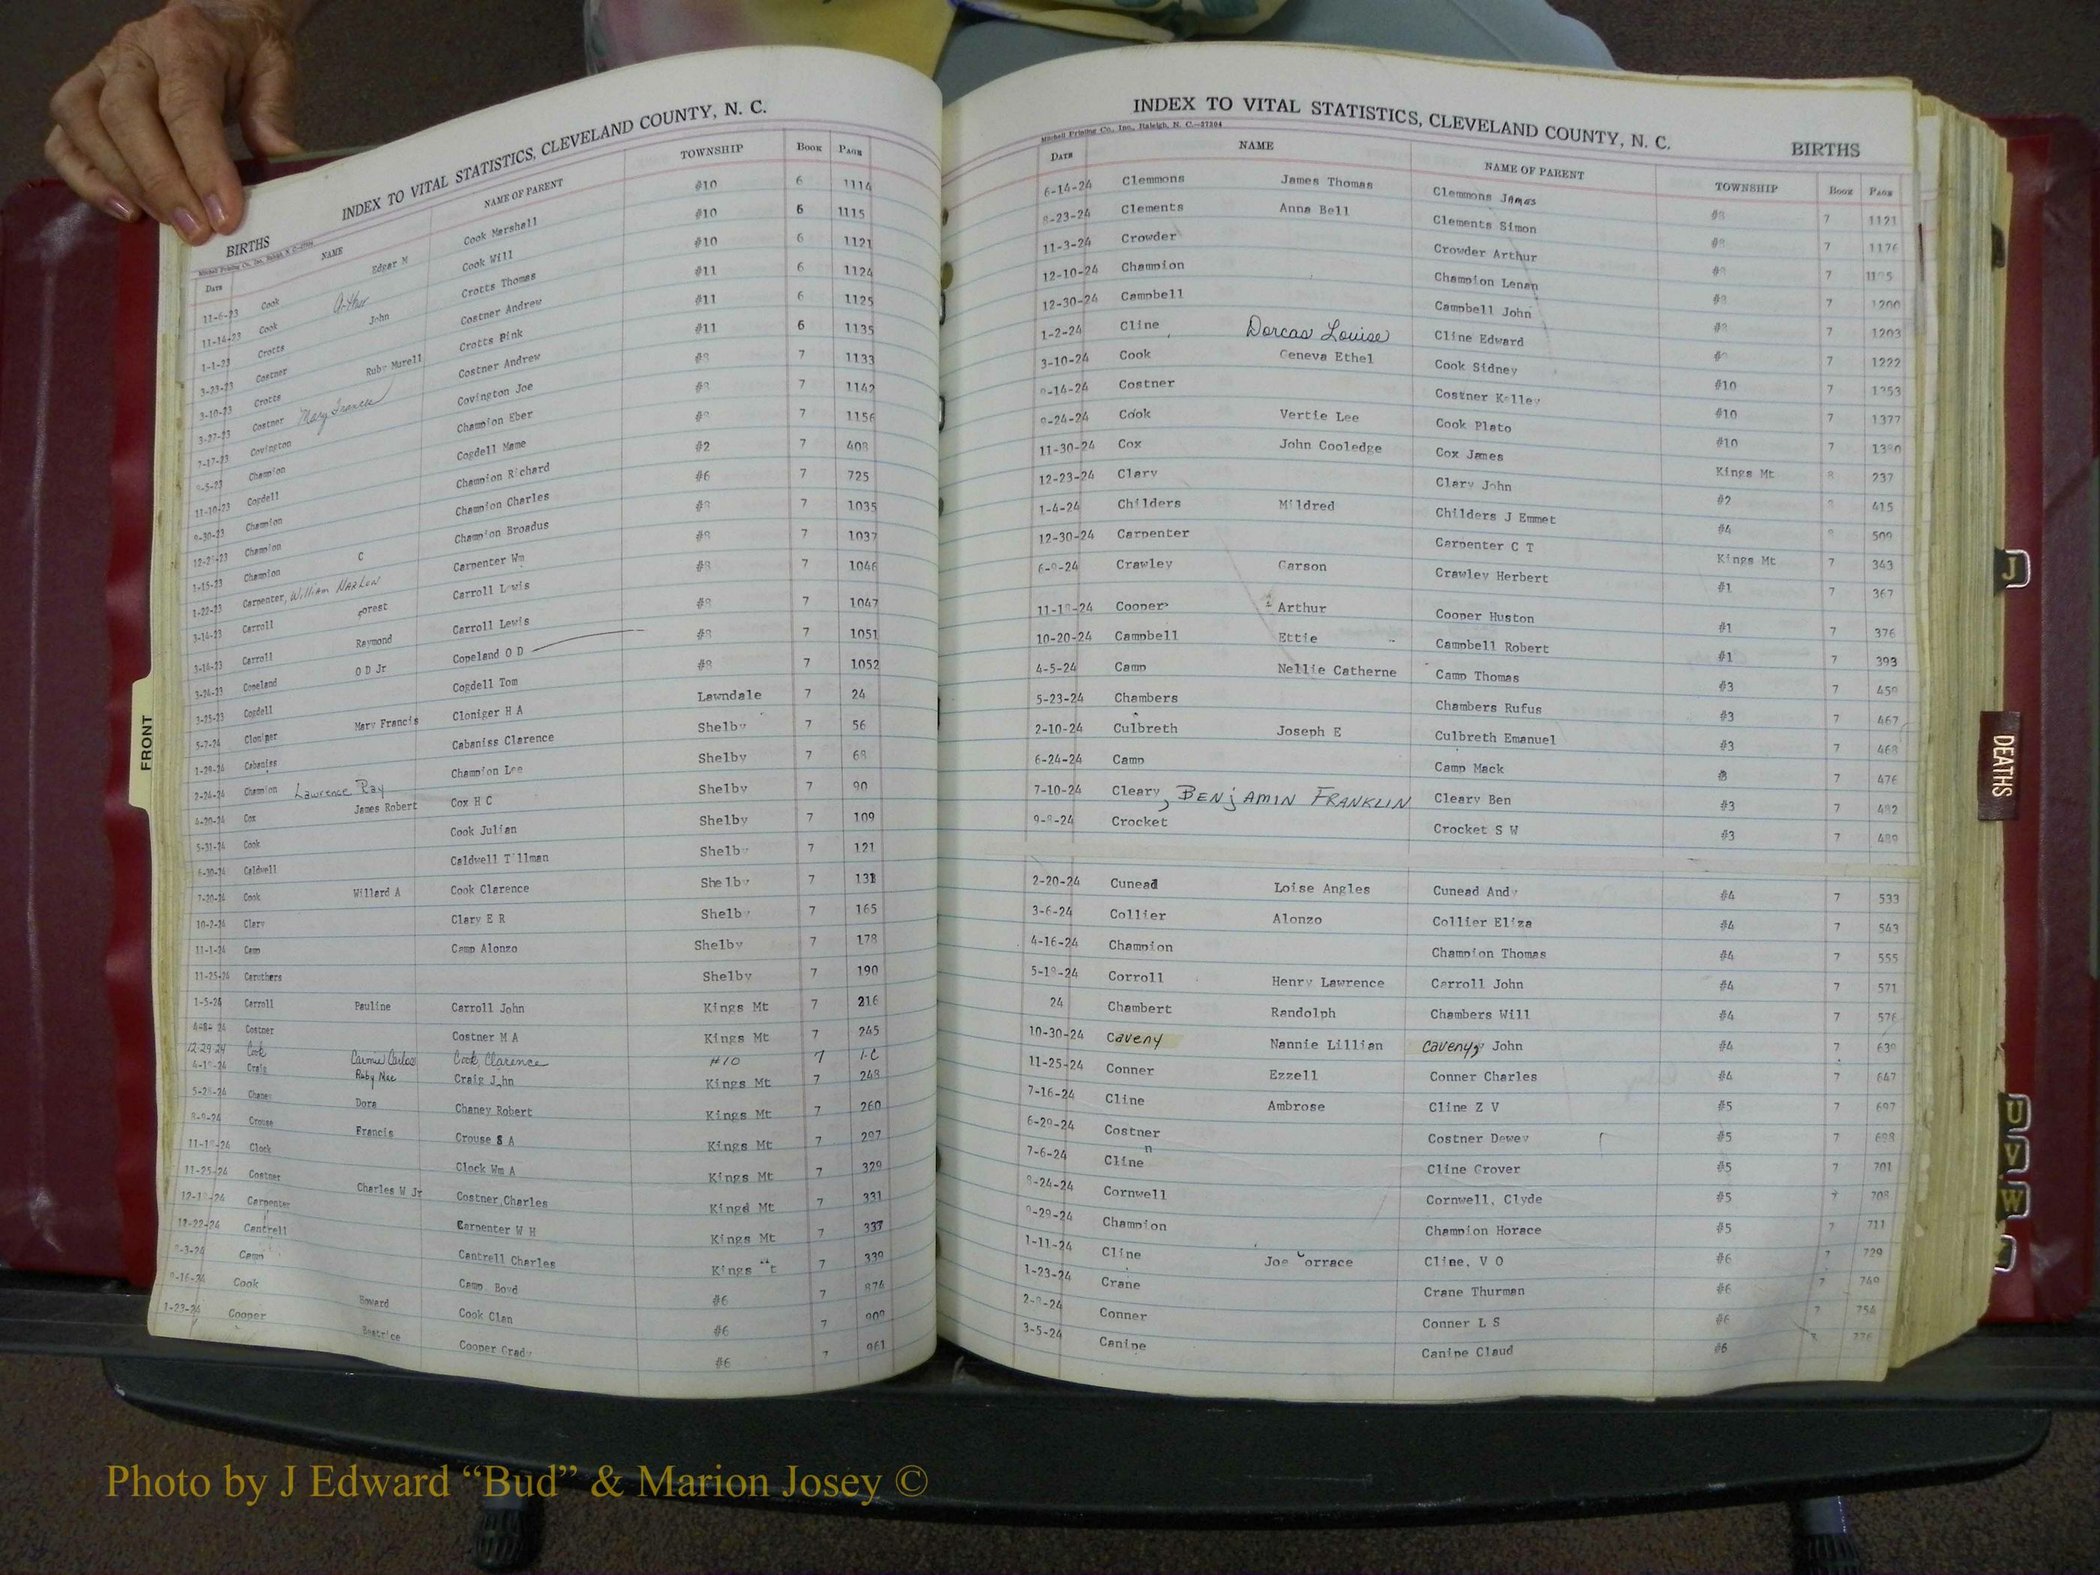 INDEX TO VITAL STATISTICS, CLEVELAND COUNTY, N. C.
BIRTHS
DATE NAME NAME OF PARENT TOWNSHIP BOOK PAGE
11-6-23 Cook Edgar M Cook Marshall #10 6 1114
11-14-23 Cook Arthur Cook Will #10 6 1115
1-1-23 Crotts John Crotts Thomas #10 6 1121
3-23-23 Costner Costner Andrew #11 6 1124
3-10-23 Crotts Ruby Murell Crotts Pink #11 6 1125
3-27-23 Costner Mary Frances Costner Andrew #11 6 1135
7-17-23 Covington Covington Joe #8 7 1133
9-5-23 Champion Champion Eber #8 7 1142
11-10-23 Cogdell Cogdell Mame #8 7 1156
9-30-23 Champion Champion Richard #2 7 408
Champion Champion Charles #6 7 725
1-15-23 Champion C Champion Broadus #8 7 1035
1-22-23 Carpenter, William Harlow Carpenter Wm #8 7 1037
3-14-23 Carroll Forest Carroll Lewis #8 7 1046
3-14-23 Carroll Raymond Carroll Lewis #8 7 1047
3-24-23 Copeland O D Jr Copeland O D #8 7 1051
3-25-23 Cogdell Cogdell Tom #8 7 1052
5-7-24 Cloniger Mary Francis Cloniger H A Lawndale 7 24
1-29-24 Cabaniss Cabaniss Clarence Shelby 7 56
2-24-24 Champion Lawrence Ray Champion Lee Shelby 7 68
4-20-24 Cox James Robert Cox H C Shelby 7 90
5-31-24 Cook Cook Julian Shelby 7 109
6-30-24 Caldwell Caldwell Tillman Shelby 7 121
7-20-24 Cook Willard A Cook Clarence Shelby 7 131
10-2-24 Clary Clary E R Shelby 7 165
11-1-24 Camp Camp Alonzo Shelby 7 178
11-25-24 Caruthers Shelby 7 190
1-5-24 Carroll Pauline Carroll John Kings Mt 7 216
Costner Costner M A Kings Mt 7 245
12-29-24 Cook Carme Carlos Cook, Clarence #10 7 1-C
4-18-24 Craig Ruby Mae Craig John Kings Mt 7 248
5-28-24 Chaney Dora Chaney Robert Kings Mt 7 260
8-9-24 Crouse Francis Crouse S A Kings Mt 7 297
11-18-24 Clock Clock Wm A Kings Mt 7 329
11-25-24 Costner Charles W Jr Costner, Charles Kings Mt 7 331
12-18-24 Carpenter Carpenter W H Kings Mt 7 337
12-22-24 Cantrell Cantrell Charles Kings Mt 7 339
Camp Camp Boyd #6 7 874
9-16-24 Cook Howard Cook Clan #6 7 909
1-23-24 Cooper Beatrice Cooper Grady #6 7 961
INDEX TO VITAL STATISTICS, CLEVELAND COUNTY, N. C.
Mitchell Printing Co., Inc., Raleigh, N. C.—37304
BIRTHS
DATE NAME NAME OF PARENT TOWNSHIP BOOK PAGE
6-14-24 Clemmons James Thomas Clemmons James #8 7 1121
8-23-24 Clements Anna Bell Clements Simon #8 7 1176
11-3-24 Crowder Crowder Arthur #8 7 1185
12-10-24 Champion Champion Lenan #8 7 1200
12-30-24 Campbell Campbell John #8 7 1203
1-2-24 Cline Dorcas Louise Cline Edward 7 1222
3-10-24 Cook Geneva Ethel Cook Sidney #10 7 1353
9-14-24 Costner Costner Kelley #10 7 1377
9-24-24 Cook Vertie Lee Cook Plato #10 7 1380
11-30-24 Cox John Cooledge Cox James Kings Mt 8 237
12-23-24 Clary Clary John #2 8 415
1-4-24 Childers Mildred Childers J Emmet #4 8 509
12-30-24 Carpenter Carpenter C T Kings Mt 7 343
6-9-24 Crawley Carson Crawley Herbert #1 7 367
11-18-24 Cooper Arthur Cooper Huston #1 7 376
10-20-24 Campbell Ettie Campbell Robert #1 7 393
4-5-24 Camp Nellie Catherne Camp Thomas #3 7 459
5-23-24 Chambers Chambers Rufus #3 7 467
2-10-24 Culbreth Joseph E Culbreth Emanuel #3 7 468
6-24-24 Camp Camp Mack 7 476
7-10-24 Cleary, BENJAMIN FRANKLIN Cleary Ben #3 7 482
9-8-24 Crocket Crocket S W #3 7 489
2-20-24 Cunead Loise Angles Cunead Andy #4 7 533
3-6-24 Collier Alonzo Collier Eliza #4 7 543
4-16-24 Champion Champion Thomas #4 7 555
5-18-24 Corroll Henry Lawrence Carroll John #4 7 571
24 Chambert Randolph Chambers Will #4 7 576
10-30-24 Caveny Nannie Lillian Caveny, John #4 7 639
11-25-24 Conner Ezzell Conner Charles #4 7 647
7-16-24 Cline Ambrose Cline Z V #5 7 697
6-29-24 Costner Costner Dewey #5 7 698
7-6-24 Cline Cline Grover #5 7 701
8-24-24 Cornwell Cornwell, Clyde #5 7 708
9-29-24 Champion Champion Horace #5 7 711
1-11-24 Cline Joe Corrace Cline, V O #6 7 729
1-23-24 Crane Crane Thurman #6 7 749
2-8-24 Conner Conner L S #6 7 754
3-5-24 Canipe Canipe Claud #6 7 776
FRONT
J
DEATHS
U
V
W
Photo by J Edward “Bud” & Marion Josey ©